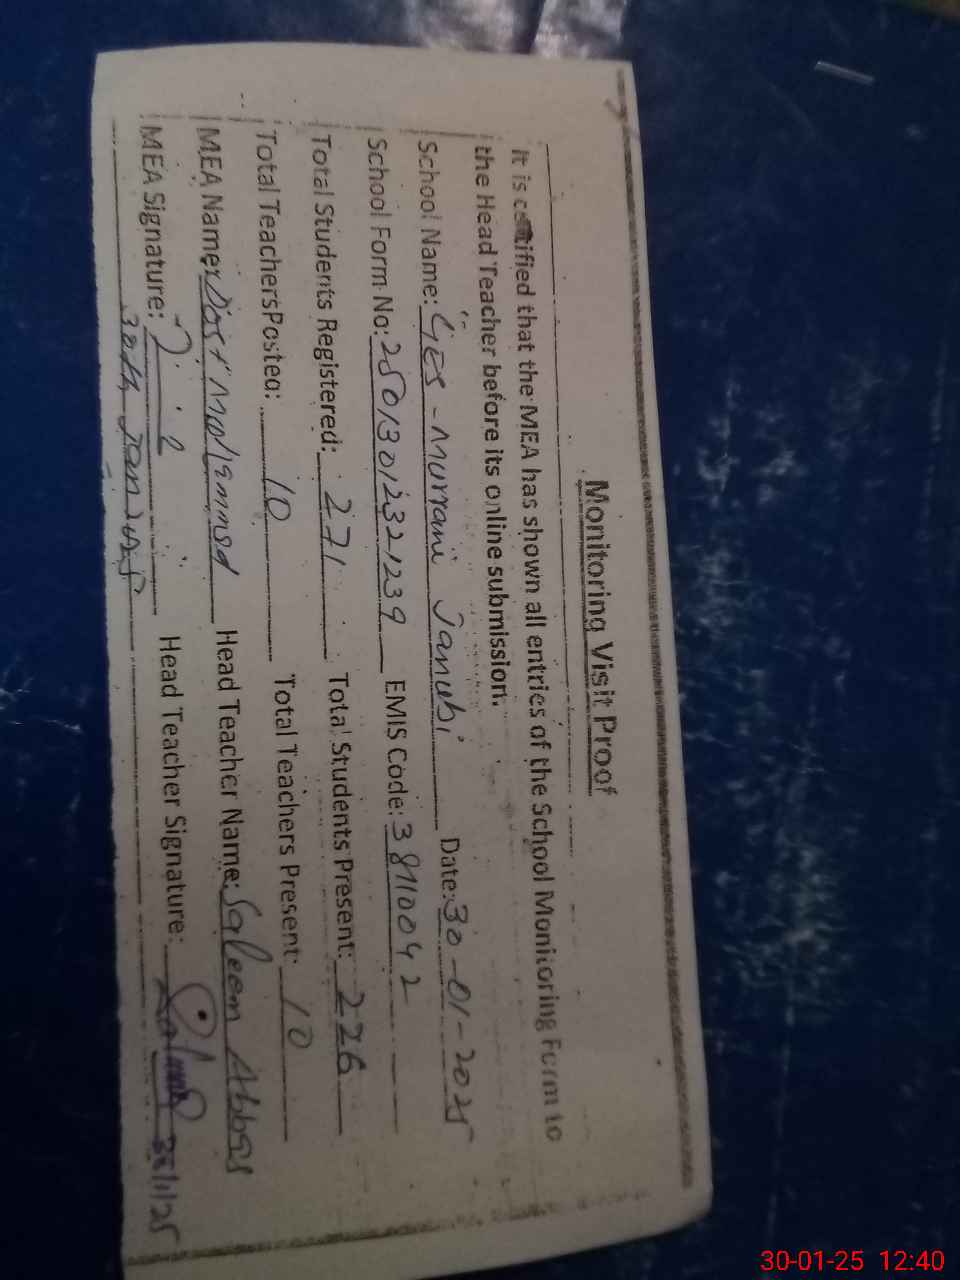 Monitoring Visit Proof
It is certified that the MEA has shown all entries of the School Monitoring Form to
the Head Teacher before its online submission.
School Name: GES - Murrani Janubi Date: 30-01-2025
School Form No: 25013012321239 EMIS Code: 38110042
Total Students Registered: 271 Total Students Present: 226
Total Teachers Posted: 10 Total Teachers Present: 10
MEA Name: Dost Mohammad Head Teacher Name: Saleem Abbas
MEA Signature: Head Teacher Signature:
30th Jan 2025 30/1/25
30-01-25 12:40